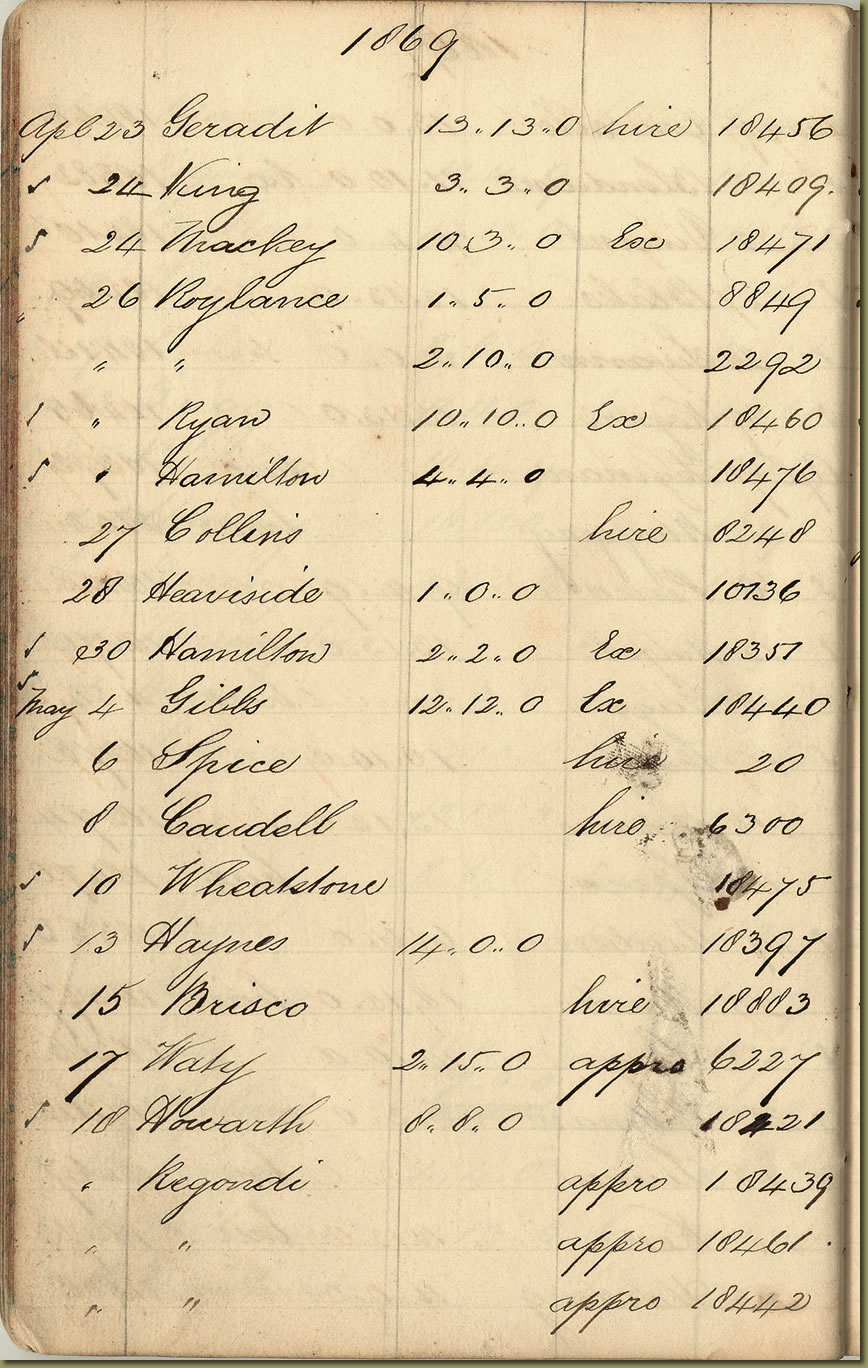 1869
Apl 23 Geradit 13..13..0 hire 18456
✓ 24 King 3..3..0 18409.
✓ 24 Mackey 10.3..0 Ex 18471
26 Roylance 1..5..0 8849
" " 2..10..0 2292
✓ " Ryan 10..10..0 Ex 18460
✓ " Hamilton 4..4..0 18476
27 Collins hire 8248
28 Heaviside 1..0..0 10136
✓ 30 Hamilton 2..2..0 Ex 18351
✓ May 4 Gibbs 12..12..0 Ex 18440
6 Spice hire 20
8 Caudell hire 6300
✓ 10 Wheatstone 18475
✓ 13 Haynes 14..0..0 18397
15 Brisco hire 18883
17 Waty 2..15..0 appro 6227
✓ 18 Howarth 8..8..0 18421
" Regondi appro 18439
" " appro 18461.
" " appro 18442